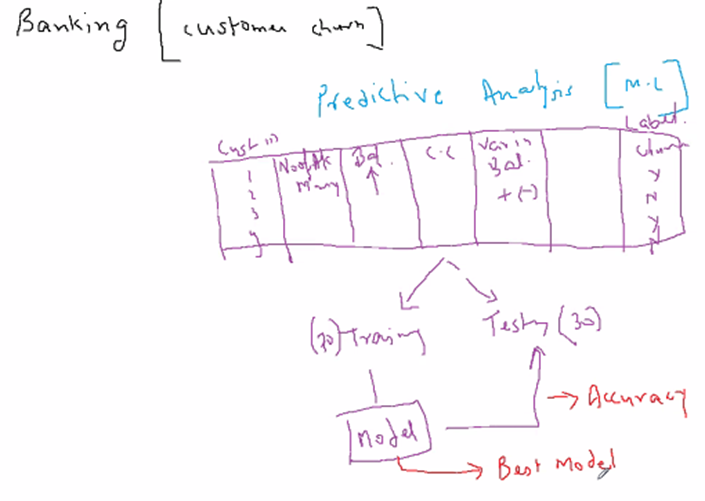 Banking [customer churn]
Predictive Analysis [M.L]
Label
Cust ID
Bal.
C.C
Var in
Bal.
churn
1
Y
2
+(-)
N
3
Y
4
N
(70) Training
Testing (30)
Model
Accuracy
Best Model